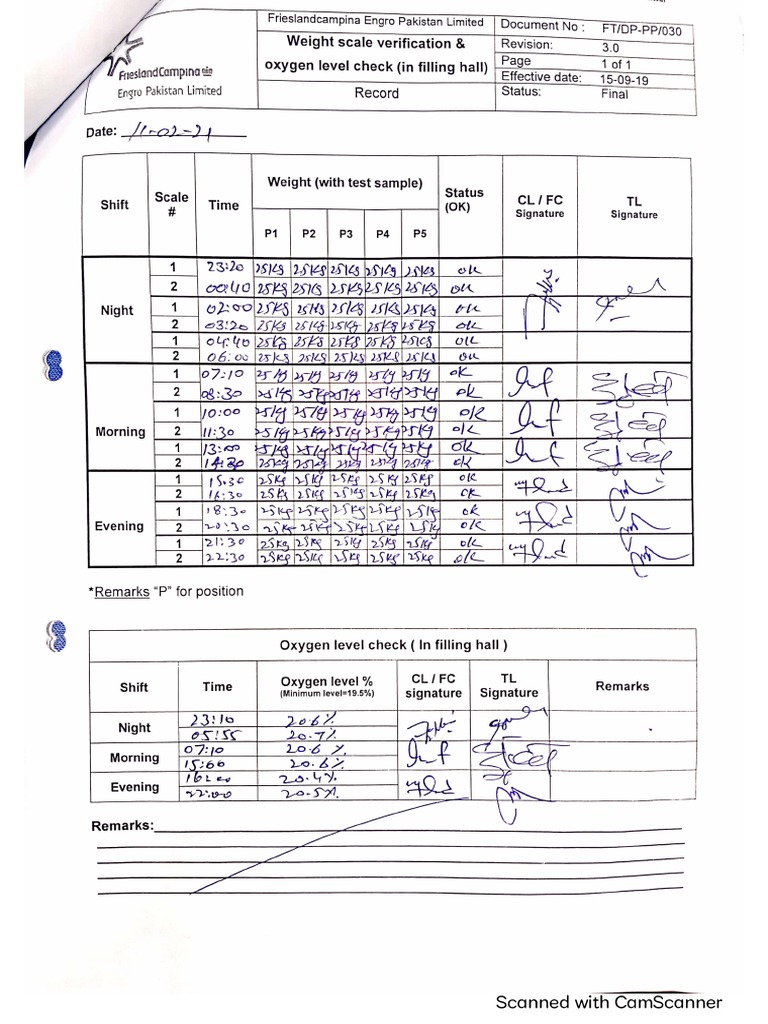 Frieslandcampina Engro Pakistan Limited
Weight scale verification &
oxygen level check (in filling hall)
Record
Document No : FT/DP-PP/030
Revision: 3.0
Page 1 of 1
Effective date: 15-09-19
Status: Final
FrieslandCampina
Engro Pakistan Limited
Date: 11-02-21
Shift Scale # Time Weight (with test sample) Status (OK) CL / FC Signature TL Signature
P1 P2 P3 P4 P5
Night
1 23:20 25Kg 25Kg 25Kg 25Kg 25Kg ok
2 00:40 25Kg 25Kg 25Kg 25Kg 25Kg ok
1 02:00 25Kg 25Kg 25Kg 25Kg 25Kg ok
2 03:20 25Kg 25Kg 25Kg 25Kg 25Kg ok
1 04:40 25Kg 25Kg 25Kg 25Kg 25Kg ok
2 06:00 25Kg 25Kg 25Kg 25Kg 25Kg ok
Morning
1 07:10 25Kg 25Kg 25Kg 25Kg 25Kg ok
2 08:30 25Kg 25Kg 25Kg 25Kg 25Kg ok
1 10:00 25Kg 25Kg 25Kg 25Kg 25Kg ok
2 11:30 25Kg 25Kg 25Kg 25Kg 25Kg ok
1 13:00 25Kg 25Kg 25Kg 25Kg 25Kg ok
2 14:30 25Kg 25Kg 25Kg 25Kg 25Kg ok
Evening
1 15:30 25Kg 25Kg 25Kg 25Kg 25Kg ok
2 16:30 25Kg 25Kg 25Kg 25Kg 25Kg ok
1 18:30 25Kg 25Kg 25Kg 25Kg 25Kg ok
2 20:30 25Kg 25Kg 25Kg 25Kg 25Kg ok
1 21:30 25Kg 25Kg 25Kg 25Kg 25Kg ok
2 22:30 25Kg 25Kg 25Kg 25Kg 25Kg ok
*Remarks “P” for position
Oxygen level check ( In filling hall )
Shift Time Oxygen level % (Minimum level=19.5%) CL / FC signature TL Signature Remarks
Night
23:10 20.6%
05:55 20.7%
Morning
07:10 20.6 %
15:00 20.6%
Evening
16:00 20.4%
22:00 20.5%
Remarks:
Scanned with CamScanner